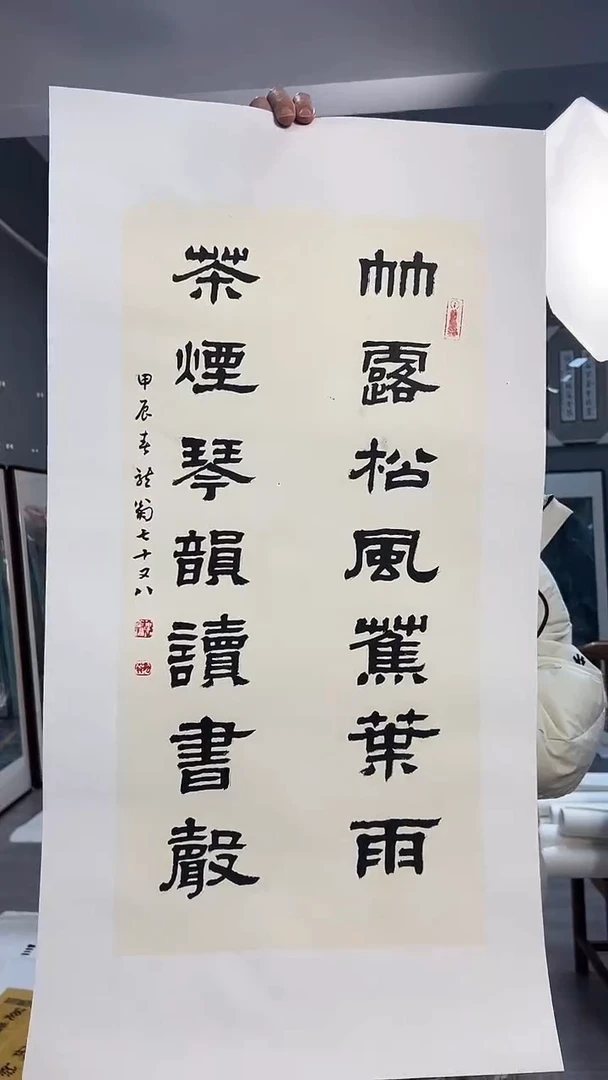 竹露松風蕉葉雨
茶煙琴韻讀書聲
甲辰春龍翁七十又八